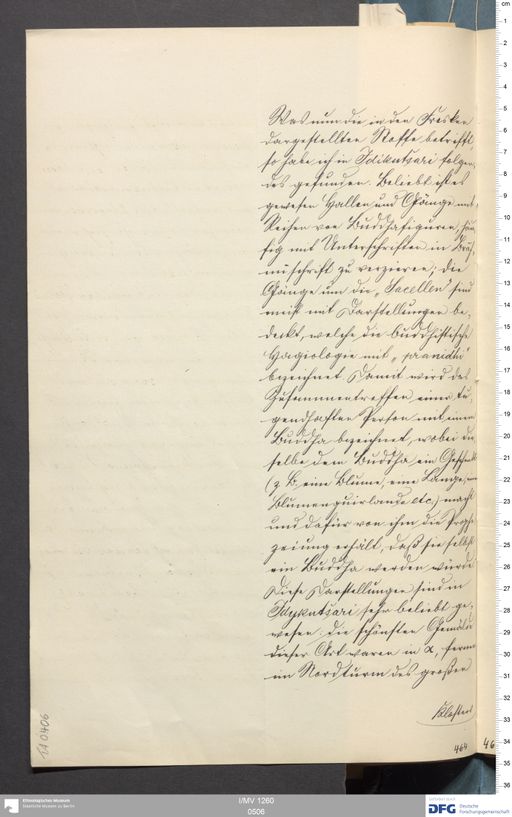 Was nun die in den Fresken
dargestellten Stoffe betrifft,
so habe ich in Idikutšari folgen-
des gefunden. Beliebt ist es
gewesen Hallen und Gänge mit
Reihen von Buddhafiguren, häu-
fig mit Unterschriften in Brāh-
mischrift zu verzieren; die
Gänge um die „Sacellen" sind
meist mit Darstellungen be-
deckt, welche die buddhistische
Hagiologie mit „pranidhi"
bezeichnet. Damit wird das
Zusammentreffen einer tu-
gendhaften Person mit einem
Buddha bezeichnet, wobei die-
selbe dem Buddha ein Geschenk
(z. B. eine Blume, eine Lampe, eine
Blumenguirlande etc.) macht
und dafür von ihm die Prophe-
zeiung erhält, daß sie selbst
ein Buddha werden würde.
Diese Darstellungen sind in
Idykutšari sehr beliebt ge-
wesen: die schönsten Gemälde
dieser Art waren in α, ferner
im Nordturm des großen
Klosters
464
46
I/MV 1260
0506
Ethnologisches Museum
Staatliche Museen zu Berlin
DFG
Deutsche
Forschungsgemeinschaft